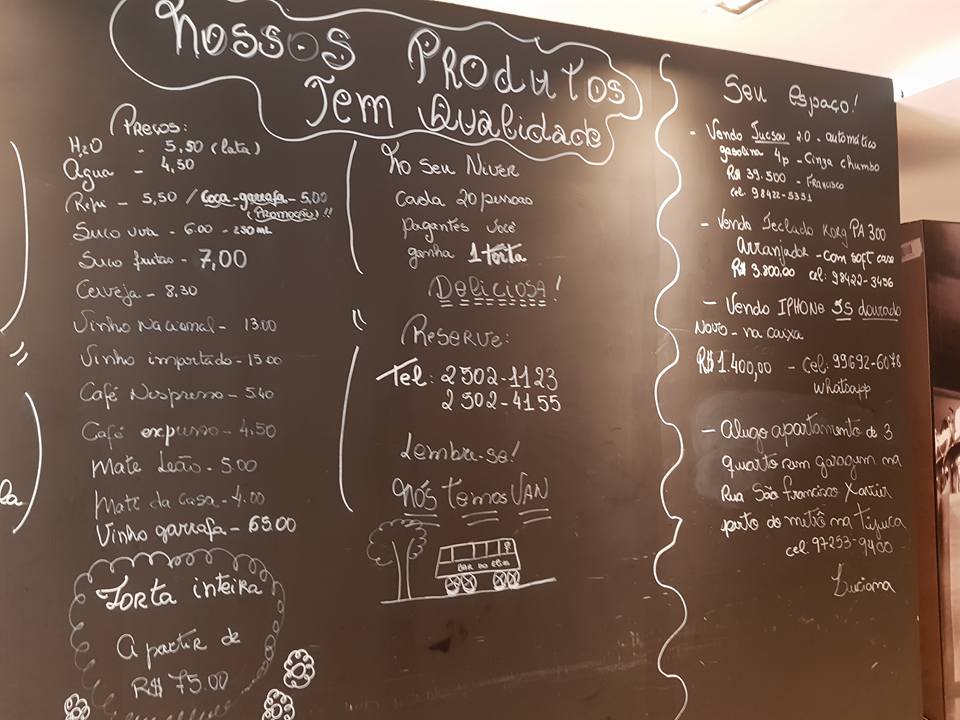 Nossos Produtos
Tem Qualidade
Preços:
H2O - 5,50 (lata)
Água - 4,50
Refri - 5,50 / Coca-garrafa - 5,00
(Promoção)!!
Suco uva - 6.00 - 250 ML
Suco frutas - 7,00
Cerveja - 8,30
Vinho Nacional - 13.00
Vinho importado - 15.00
Café Nespresso - 5.40
Café expresso - 4,50
Mate Leão - 5.00
Mate da casa - 4.00
Vinho garrafa - 65.00
Torta inteira
A partir de
R$ 75.00
No seu Niver
Cada 20 pessoas
pagantes você
ganha 1 torta
Deliciosa!
Reserve:
Tel: 2502-1123
2502-4155
Lembre-se!
Nós temos VAN
BAR DO
Seu espaço!
- Vendo Tucson 2.0 - automático
gasolina 4p - Cinza chumbo
R$ 39.500 - Francisco
cel. 98422-5351
- Vendo Teclado Korg PA 300
Arranjador - com soft case
R$ 3.800.00 cel: 98422-3456
- Vendo IPHONE 5s dourado
Novo - na caixa
R$ 1.400,00 - Cel: 99692-6078
Whatsapp
- Alugo apartamento de 3
quarto sem garagem na
Rua São Francisco Xavier
perto do metrô na Tijuca
cel: 97253-9400
Luciana